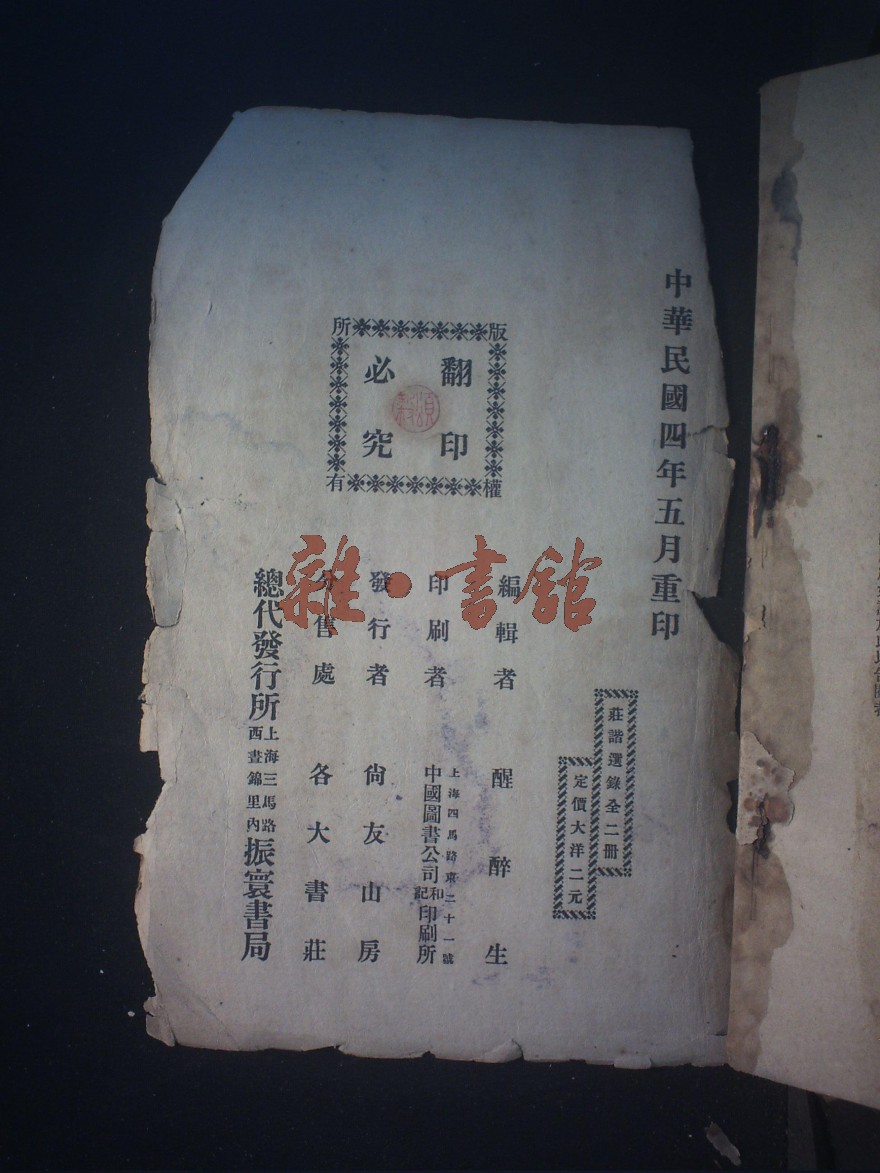 中華民國四年五月重印
莊諧選錄全二册
定價大洋二元
版權所有
翻印必究
編輯者 醒醉生
印刷者 上海四馬路東二十一號 中國圖書公司和記印刷所
發行者 尙友山房
分售處 各大書莊
總代發行所 上海三馬路西晝錦里內 振寰書局
雜·書館